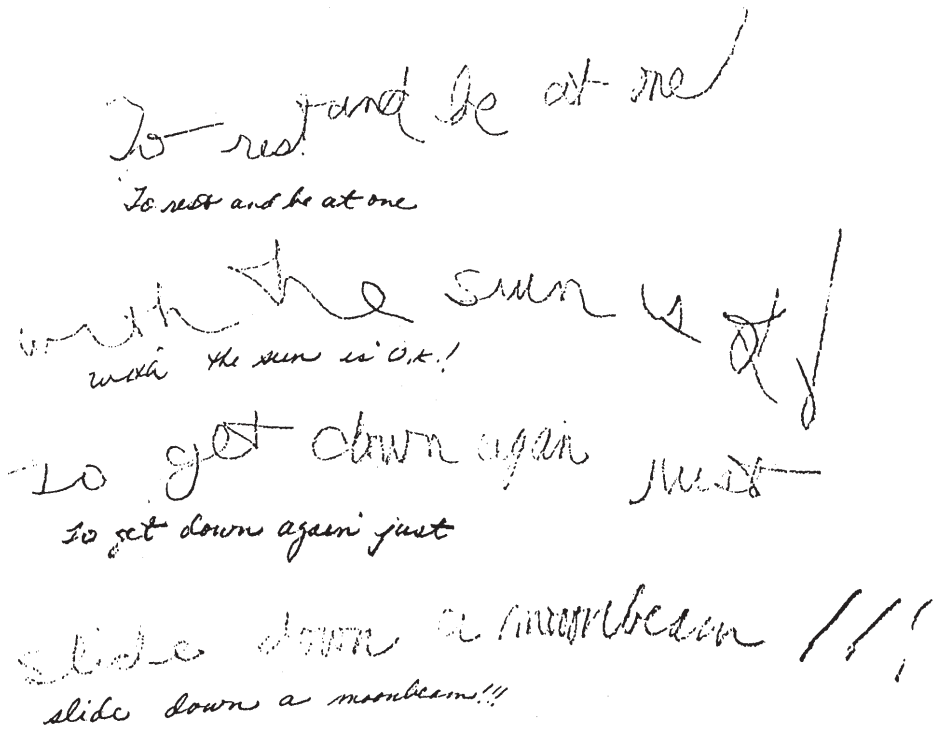 To rest and be at one
To rest and be at one
with the sun is ok!
with the sun is O.K.!
To get down again just
To get down again just
slide down a moonbeam !!!
slide down a moonbeam!!!